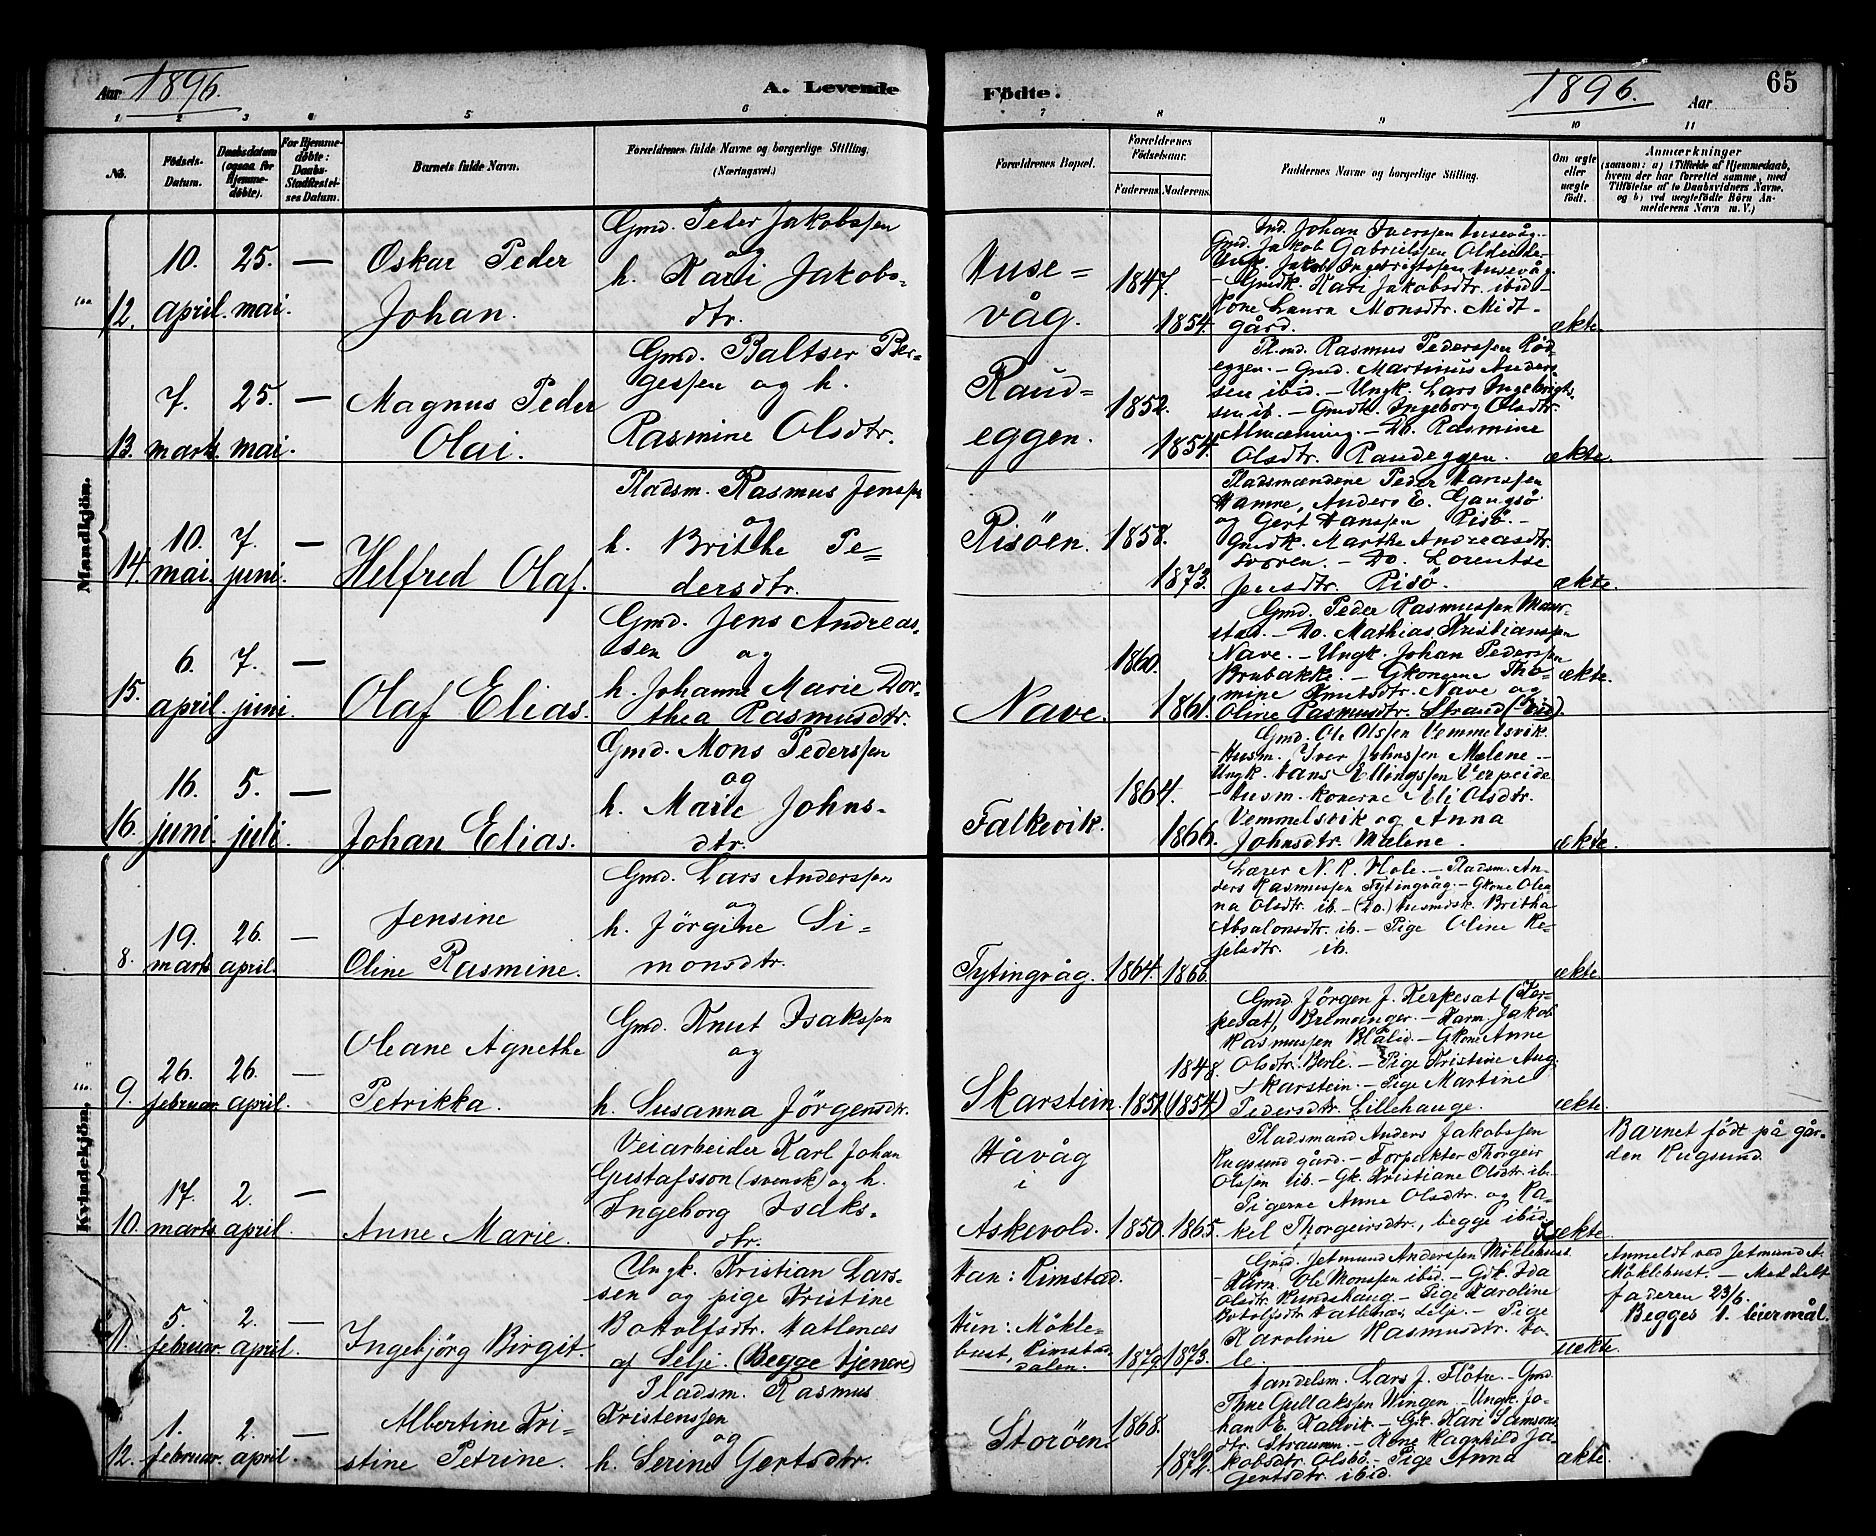 Aar 1896. A. Levende Födte. 1896. Aar 65
1 2 3 4 5 6 7 8 9 10 11
No.
Födsels-Datum.
Daabsdatum (ogsaa for Hjemmedøbte).
For Hjemmedøbte: Daabs-Stadfæstelses Datum.
Barnets fulde Navn.
Forældrenes fulde Navne og borgerlige Stilling.
(Næringsvei.)
Forældrenes Bopæl.
Forældrenes Fødselsaar.
Faderens. Moderens.
Faddernes Navne og borgerlige Stilling.
Om ægte eller uægte født.
Anmærkninger
(saasom: a) i Tilfælde af Hjemmedaab, hvem der har forrettet samme, med Tilføielse af to Daabsvidners Navne, og b) ved uægtefødte Børn Anmelderens Navn m. V.)
Mandkjön.
12. 10. april. 25. mai. —
Oskar Peder
Johan.
Gmd. Peder Jakobssen
og
h. Kari Jakobs-
dtr.
Huse-
våg.
1847. 1854.
Gmd. Johan Iverssen Husevåg. -
Gmd. Jakob Gabrielssen
Ungk. Jakob Ingebrigtssen Husevåg.
- Gmdk. Kari Jakobsdtr. ibid -
Kone Laura Monsdtr. Midt-
gård.
ækte.
13. 7. marts. 25. mai. —
Magnus Peder
Olai.
Gmd. Baltser Ber-
gessen og h.
Rasmine Olsdtr.
Raud-
eggen.
1852. 1854.
Pl.md. Rasmus Pederssen Röd-
eggen. - Gmd. Martinus Anders-
sen ibid. - Ungk. Lars Ingebrigt-
sen ib. - Gmdk. Ingeborg Olsdtr.
Almenning. - Do. Rasmine
Olsdtr. Raudeggen.
ækte.
14. 10. mai. 7. juni. —
Helfred Olaf.
Pladsm. Rasmus Jenssen
og
h. Brithe Pe-
dersdtr.
Risöen.
1858. 1873.
Pladsmændene Peder Hanssen
Hamne, Anders E. Gangsö
og Gert Hanssen Risö. -
Gmdk. Marthe Andreasdtr.
- Do. Lorentse
Jensdtr. Risö.
ækte.
15. 6. april. 7. juni. —
Olaf Elias.
Gmd. Jens Andreas-
sen og
h. Johanne Marie Dor-
thea Rasmusdtr.
Nave.
1860. 1861.
Gmd. Peder Rasmussen Maur-
stad. - Do. Mathias Kristianssen
Nave. - Ungk. Johan Pederssen
Brubakke. - Gkonerne Tho-
mine Knutsdtr. Nave og
Oline Rasmusdtr. Strand (- Eid).
ækte.
16. 16. juni. 5. juli. —
Johan Elias.
Gmd. Mons Pederssen
og
h. Marie Johns-
dtr.
Falkevik.
1864. 1866.
Gmd. Ole Olssen Vemmelsvik.
- Husm. Iver Johnssen Mælene. -
Ungk. Hans Ellingssen Verpeide
- Husm.konerne Eli Olsdtr.
Vemmelsvik og Anna
Johnsdtr. Mælene.
ækte.
Kvindekjön.
8. 19. marts 26. april. —
Jensine
Oline Rasmine.
Gmd. Lars Anderssen
og
h. Jörgine Si-
monsdtr.
Tytingvåg.
1864. 1866.
Lærer N. R. Hole. - Pladsm. An-
ders Rasmussen Tytingvåg. - Gkone Olea-
na Olsdtr. ib. - (Do.) Husmdsk. Britha
Absalonsdtr. ib. - Pige Oline Ke-
jelsdtr. ib.
ækte.
9. 26. februar. 26. april. —
Oleane Agnethe
Petrikka.
Gmd. Knut Isakssen
og
h. Susanna Jörgensdtr.
Skarstein.
1851. 1848. (1854)
Gmd. Jörgen J. Kerkesat (Ker-
kesat), Bremanger. - Karm. Jakob
Rasmussen Blålid. - Gkone Anne
Olsdtr. Berle. - Pige Kristine Aug.
Skarstein. - Pige Martine
Pedersdtr. Lillehauge.
ækte.
10. 17. marts 2. april. —
Anne Marie.
Veiarbeider Karl Johan
Gustafsson (svensk) og h.
Ingeborg Isaks-
dtr.
Håvåg
i
Askevold.
1850. 1865.
Pladsmand Anders Jakobssen
Rugsund gård. - Forpakter Thorgeir
Olssen ib. - Gk. Kristiane Olsdtr. ib.
Pigerne Anne Olsdtr. og Ra-
kel Thorgeirsdtr., begge ibid.
ækte.
Barnet född på går-
den Rugsund.
11. 5. februar 2. april. —
Ingebjörg Birgit.
Ungk. Kristian Lars-
sen og pige Kristine
Botolfsdtr. Hatlenes
af Selje. (Begge tjenere)
Han: Rimstad.
Hun: Mökle-
bust, Rimstad-
dalen.
1872. 1873.
Gmd. Jetmund Anderssen Möklebust.
- Kårm. Ole Monssen ibid. - Gk. Ida
Olsdtr. Rundshaug. - Pige Karoline
Botolfsdtr. Hatlenes, Selje. - Pige
Karoline Rasmusdtr. Ho-
le.
uækte.
Anmeldt ved Jetmund A.
Möklebust. - Meddelt
faderen 23/6.
Begges 1. leiermål.
12. 1. februar. 2. april. —
Albertine Kri-
stine Petrine.
Pladsm. Rasmus
Kristenssen
og
h. Serine Gertsdtr.
Storöen.
1868. 1872.
Handelsm. Lars J. Flötre. - Gmd.
Thue Gullakssen Vingen. - Ungk. Jo-
han E. Kalvik. - Gk. Kari Samsons-
dtr. Straumm. - Kone Ragnhild Ja-
kobsdtr. Olsbö. - Pige Anna
Gertsdtr. ibid.
ækte.